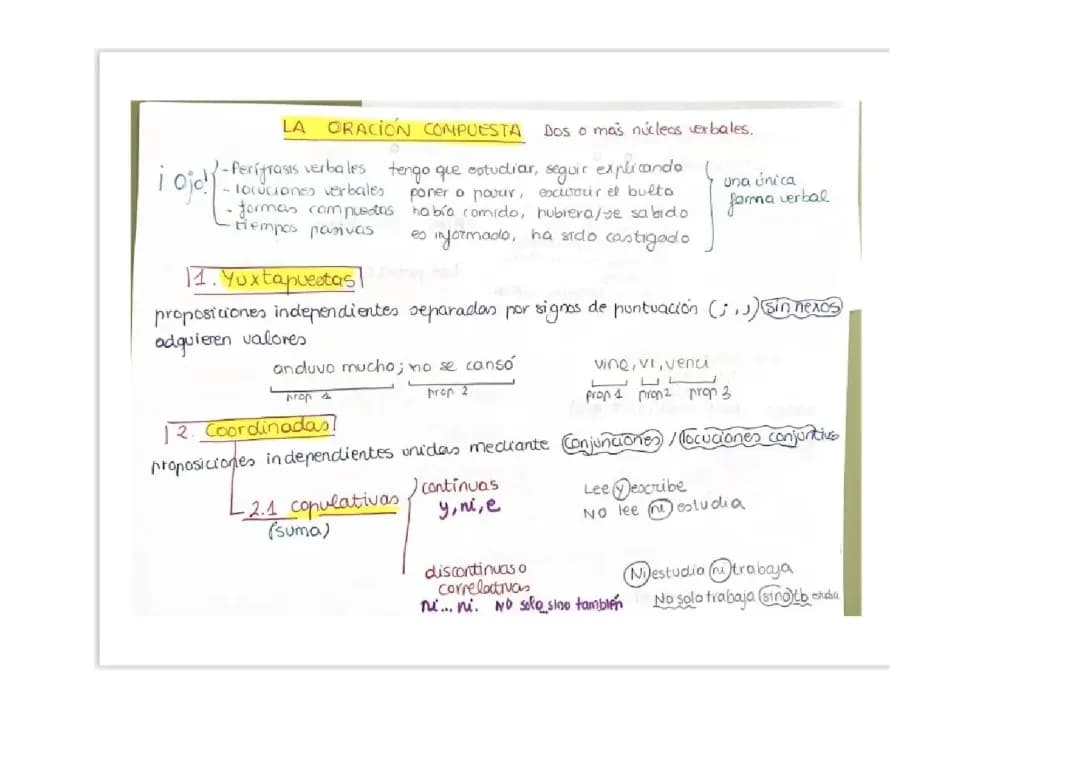 LA ORACIÓN COMPUESTA Dos o más núcleos verbales.
¡Ojo! - Perífrasis verbales tengo que estudiar, seguir explicando
- locuciones verbales poner a parir, escurrir el bulto
- formas compuestas había comido, hubiera/se sabido
- tiempos pasivas es informado, ha sido castigado
una única
forma verbal
1. Yuxtapuestas
proposiciones independientes separadas por signos de puntuación (; , ,) sin nexos
adquieren valores
anduvo mucho; no se cansó vine, vi, vencí
prop 1 prop. 2 prop 1 prop 2 prop 3
2. Coordinadas
proposiciones independientes unidas mediante conjunciones / locuciones conjuntivas
2.1 copulativas continuas Lee y escribe
(suma) y, ni, e NO lee ni estudia
discontinuas o Ni estudia ni trabaja
correlactivas
ni... ni. NO solo sino también No solo trabaja sino tb estudia